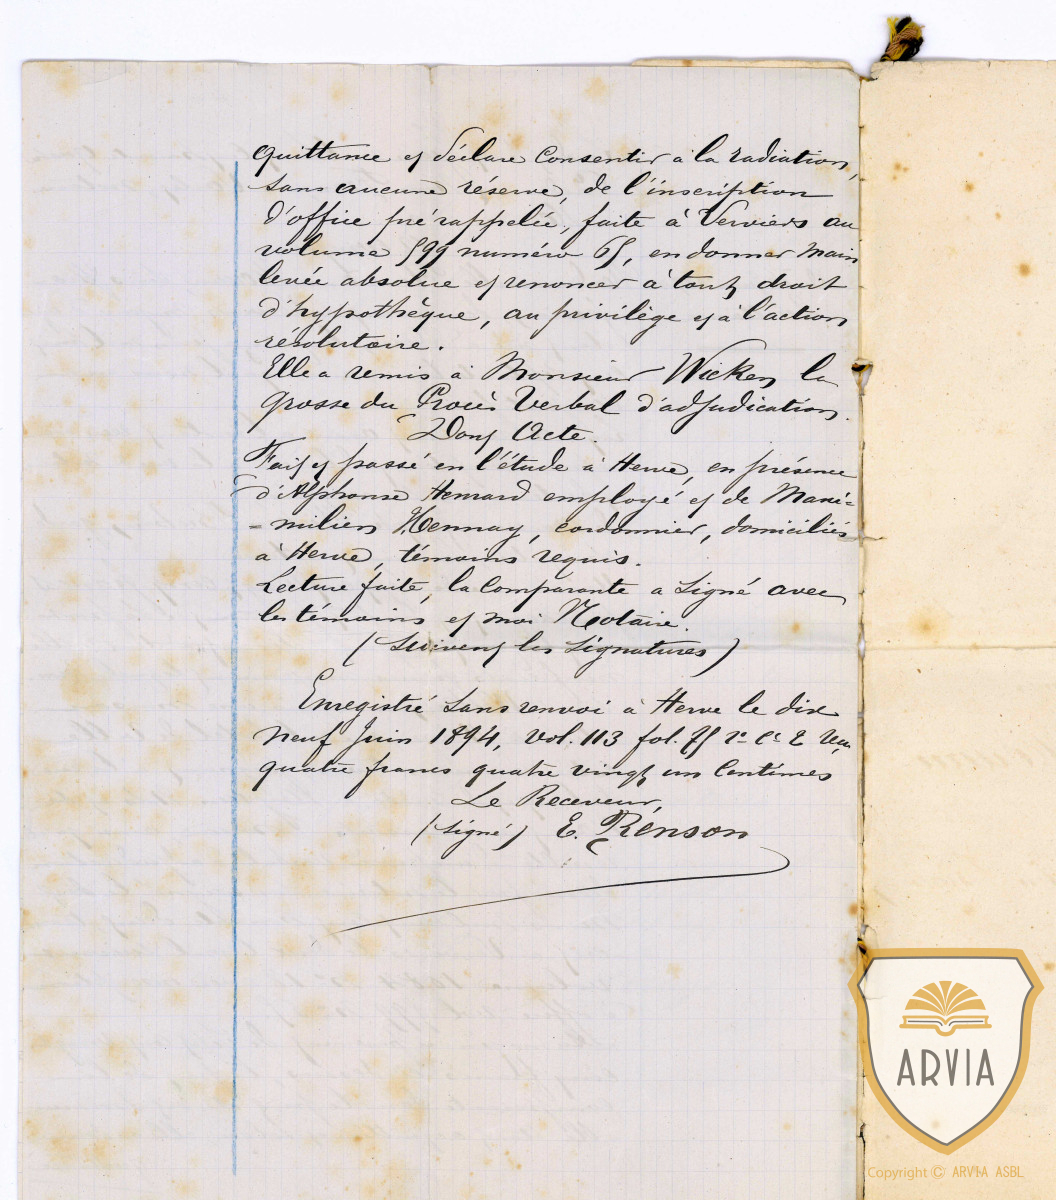 quittance et déclare consentir à la radiation,
sans aucune réserve, de l'inscription
d'office pré rappelée, faite à Verviers au
volume 599 numéro 65, en donner main
levée absolue et renoncer à tout droit
d'hypothèque, au privilège et à l'action
résolutoire.
Elle a remis à Monsieur Wicken la
grosse du Procès Verbal d'adjudication.
Dont Acte.
Fait et passé en l'étude à Herve, en présence
d'Alphonse Henrard employé et de Maxi=
=milien Hennay, cordonnier, domiciliés
à Herve, témoins requis.
Lecture faite, la comparante a signé avec
les témoins et moi Notaire.
(Suivent les signatures)
Enregistré sans renvoi à Herve le dix
neuf Juin 1894, vol. 113 fol. 75
quatre francs quatre vingt un centimes
Le Receveur,
(signé) E. Rénson
ARVIA
Copyright © ARVIA ASBL